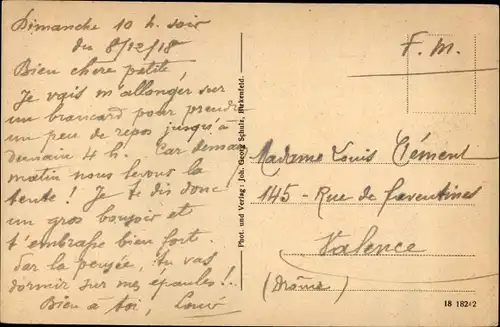 Dimanche 10 h. soir
du 8/12/18
Bien chère petite
Je vais m'allonger sur
un brancard pour prendre
un peu de repos jusqu'à
demain 4 h. Car demain
matin nous levons la
tente ! Je te dis donc
un gros bonsoir et
t'embrasse bien fort.
Par la pensée, tu vas
dormir sur mes épaules !..
Bien à toi, Louis
Phot. und Verlag: Joh. Georg Schulz, Birkenfeld.
F. M.
Madame Louis Clément
145 - Rue de Faventines
Valence
(Drôme)
18 18242